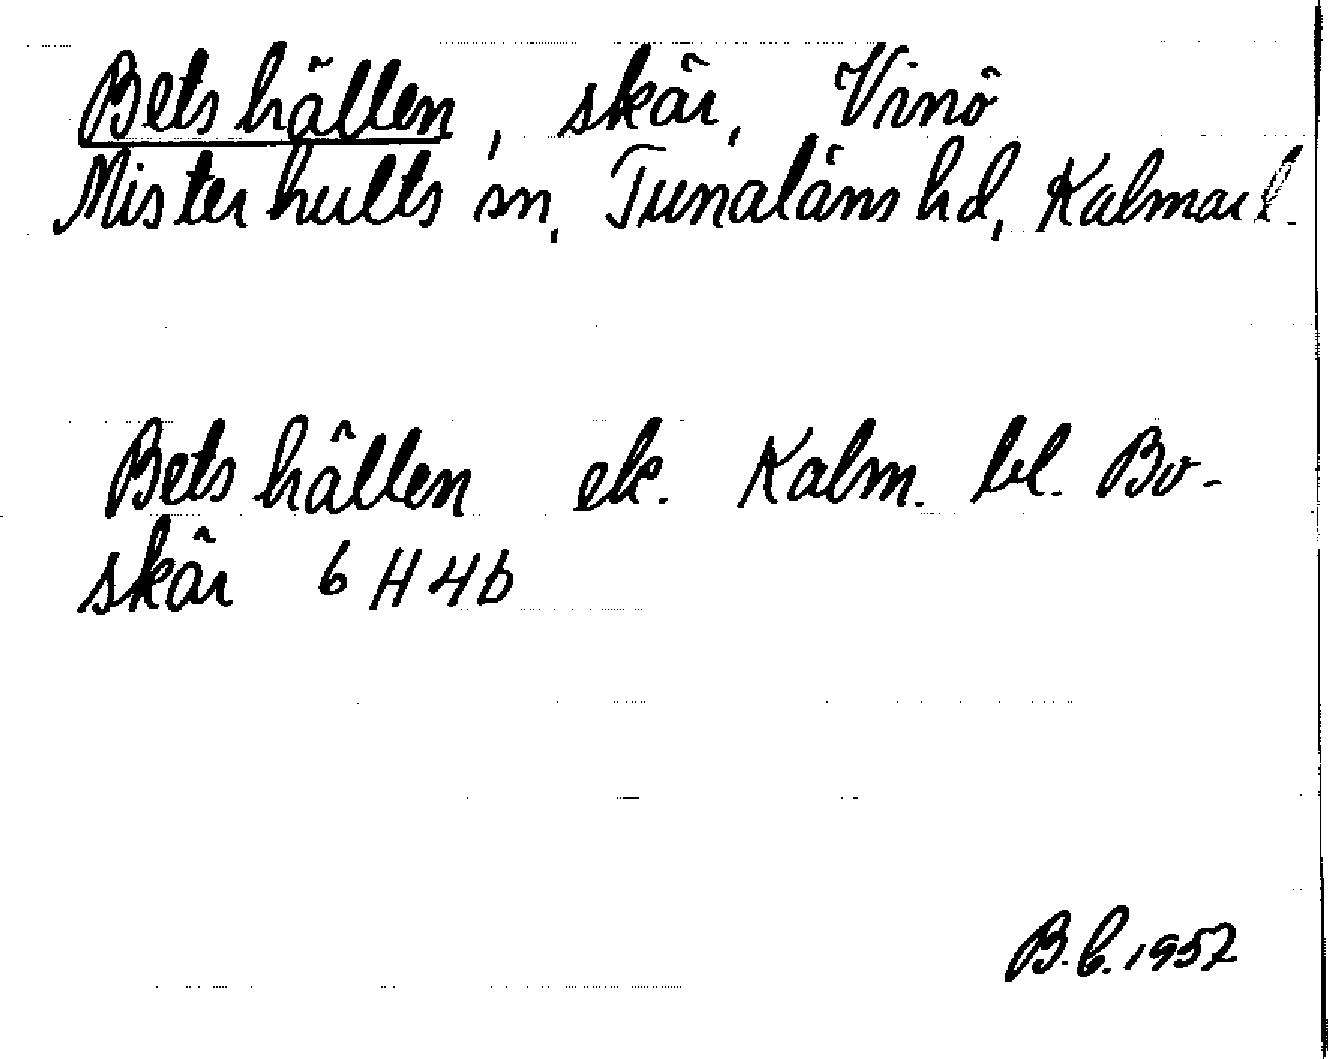 Betshällen, skär, Vinö
Misterhults sn, Tunaläns hd, Kalmar l.
Betshällen ek. Kalm. bl. Bo-
skär 6 H 4b
B. G. 1952